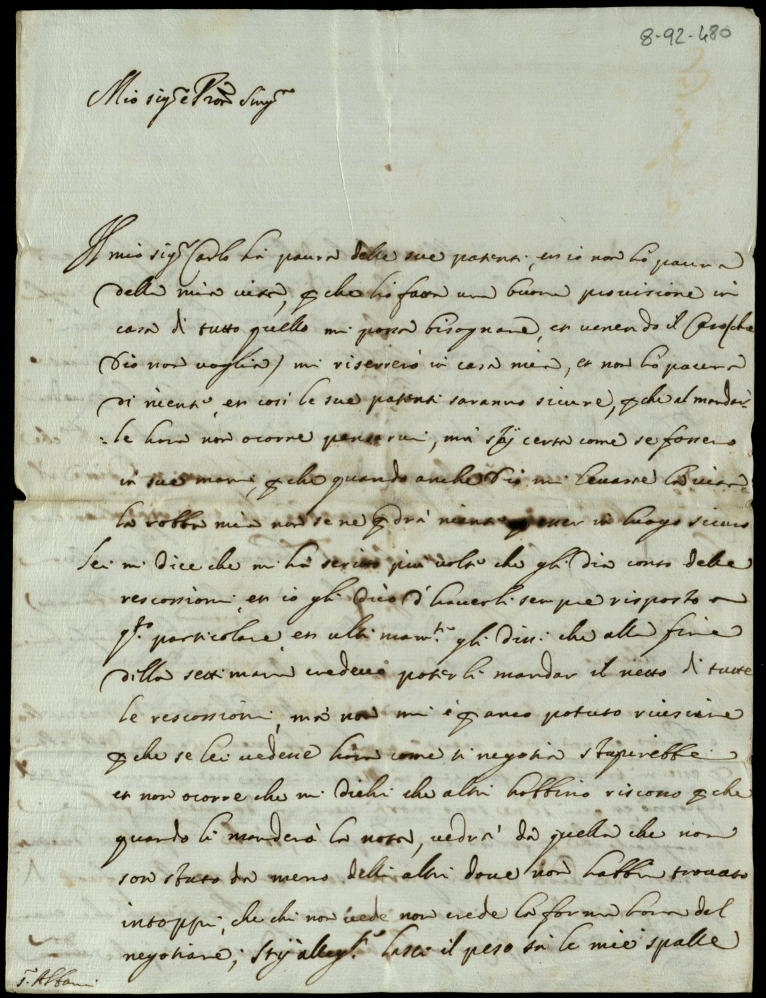 8-92-480
Mio sig.re e Pron Sing.mo
Il mio sig.r Carlo hà paura delle sue patenti, et io non hò paura
della mia vita, p che hò fatta una buona provisione in
casa di tutto quello mi possa bisognare, et venendo il Caso (che
Dio non voglia) mi riserrerò in casa mia, et non hò paura
di niente, et così le sue patenti saranno sicure, p che al mandar=
=le hora non ocorre pensarvi, mà stij certa come se fossero
in sue mani, p che quando anche Dio mi levasse la vita
la robba mia non se ne pdrà niente p esser in luogo sicuro
Lei mi dice che mi hà scritto più volte che gli dia conto delle
rescossioni, et io gli dico d'haverli sempre risposto a
q.to particolare, et ultimam.te gli dissi che alla fine
della settimana credevo poterli mandar il netto di tutte
le rescossioni, mà non mi è p anco potuto riuscire
p che se lei vedesse hora come si negotia stupirebbe
et non ocorre che mi dichi che altri habbino riscosso p che
quando li manderò la nota, vedrà da quella che non
son stato da meno delli altri dove non habbia trovato
intoppi, che chi non vede non crede la forma hora del
negotiare; Stij alleg.te lasci il peso sù le mie spalle